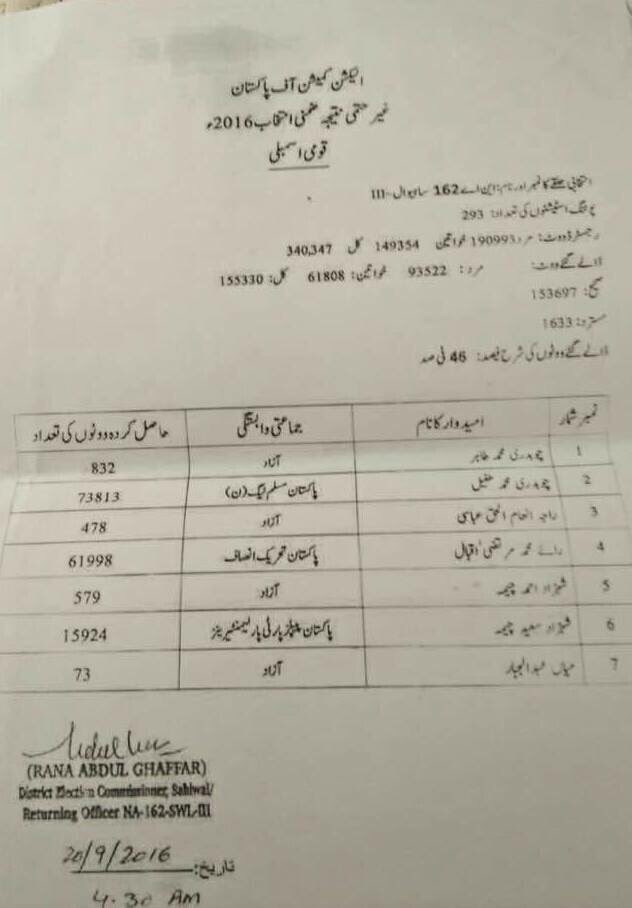 الیکشن کمیشن آف پاکستان
غیر حتمی نتیجہ ضمنی انتخاب 2016ء
قومی اسمبلی
انتخابی حلقے کا نمبر اور نام: این اے 162 ساہیوال-III
پولنگ اسٹیشنوں کی تعداد: 293
رجسٹرڈ ووٹ: مرد 190993 خواتین 149354 کل 340,347
ڈالے گئے ووٹ: مرد: 93522 خواتین: 61808 کل: 155330
صحیح: 153697
مسترد: 1633
ڈالے گئے ووٹوں کی شرح فیصد: 46 فی صد
نمبر شمار امیدوار کا نام جماعتی وابستگی حاصل کردہ ووٹوں کی تعداد
1 چوہدری محمد طاہر آزاد 832
2 چوہدری محمد طفیل پاکستان مسلم لیگ (ن) 73813
3 راجہ انعام الحق عباسی آزاد 478
4 رائے محمد مرتضیٰ اقبال پاکستان تحریک انصاف 61998
5 شہزاد احمد چیمہ آزاد 579
6 شہزاد سعید چیمہ پاکستان پیپلز پارٹی پارلیمنٹیرینز 15924
7 میاں عبدالجبار آزاد 73
(RANA ABDUL GHAFFAR)
District Election Commissioner, Sahiwal/
Returning Officer NA-162-SWL-III
تاریخ: 20/9/2016
4.30 AM